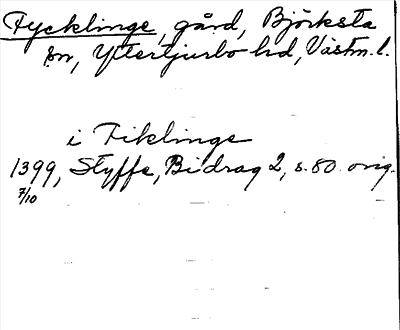 Tycklinge, gård, Björksta
sn, Yttertjurbo hd, Västm.l.
i Tiklinge
1399, Styffe, Bidrag 2, s. 80. orig.
7/10